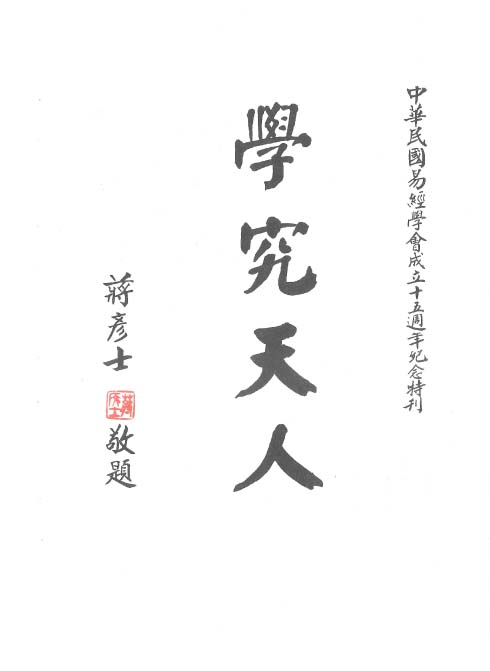 中華民國易經學會成立十五週年紀念特刊
學究天人
蔣彥士
蔣彥士
敬題